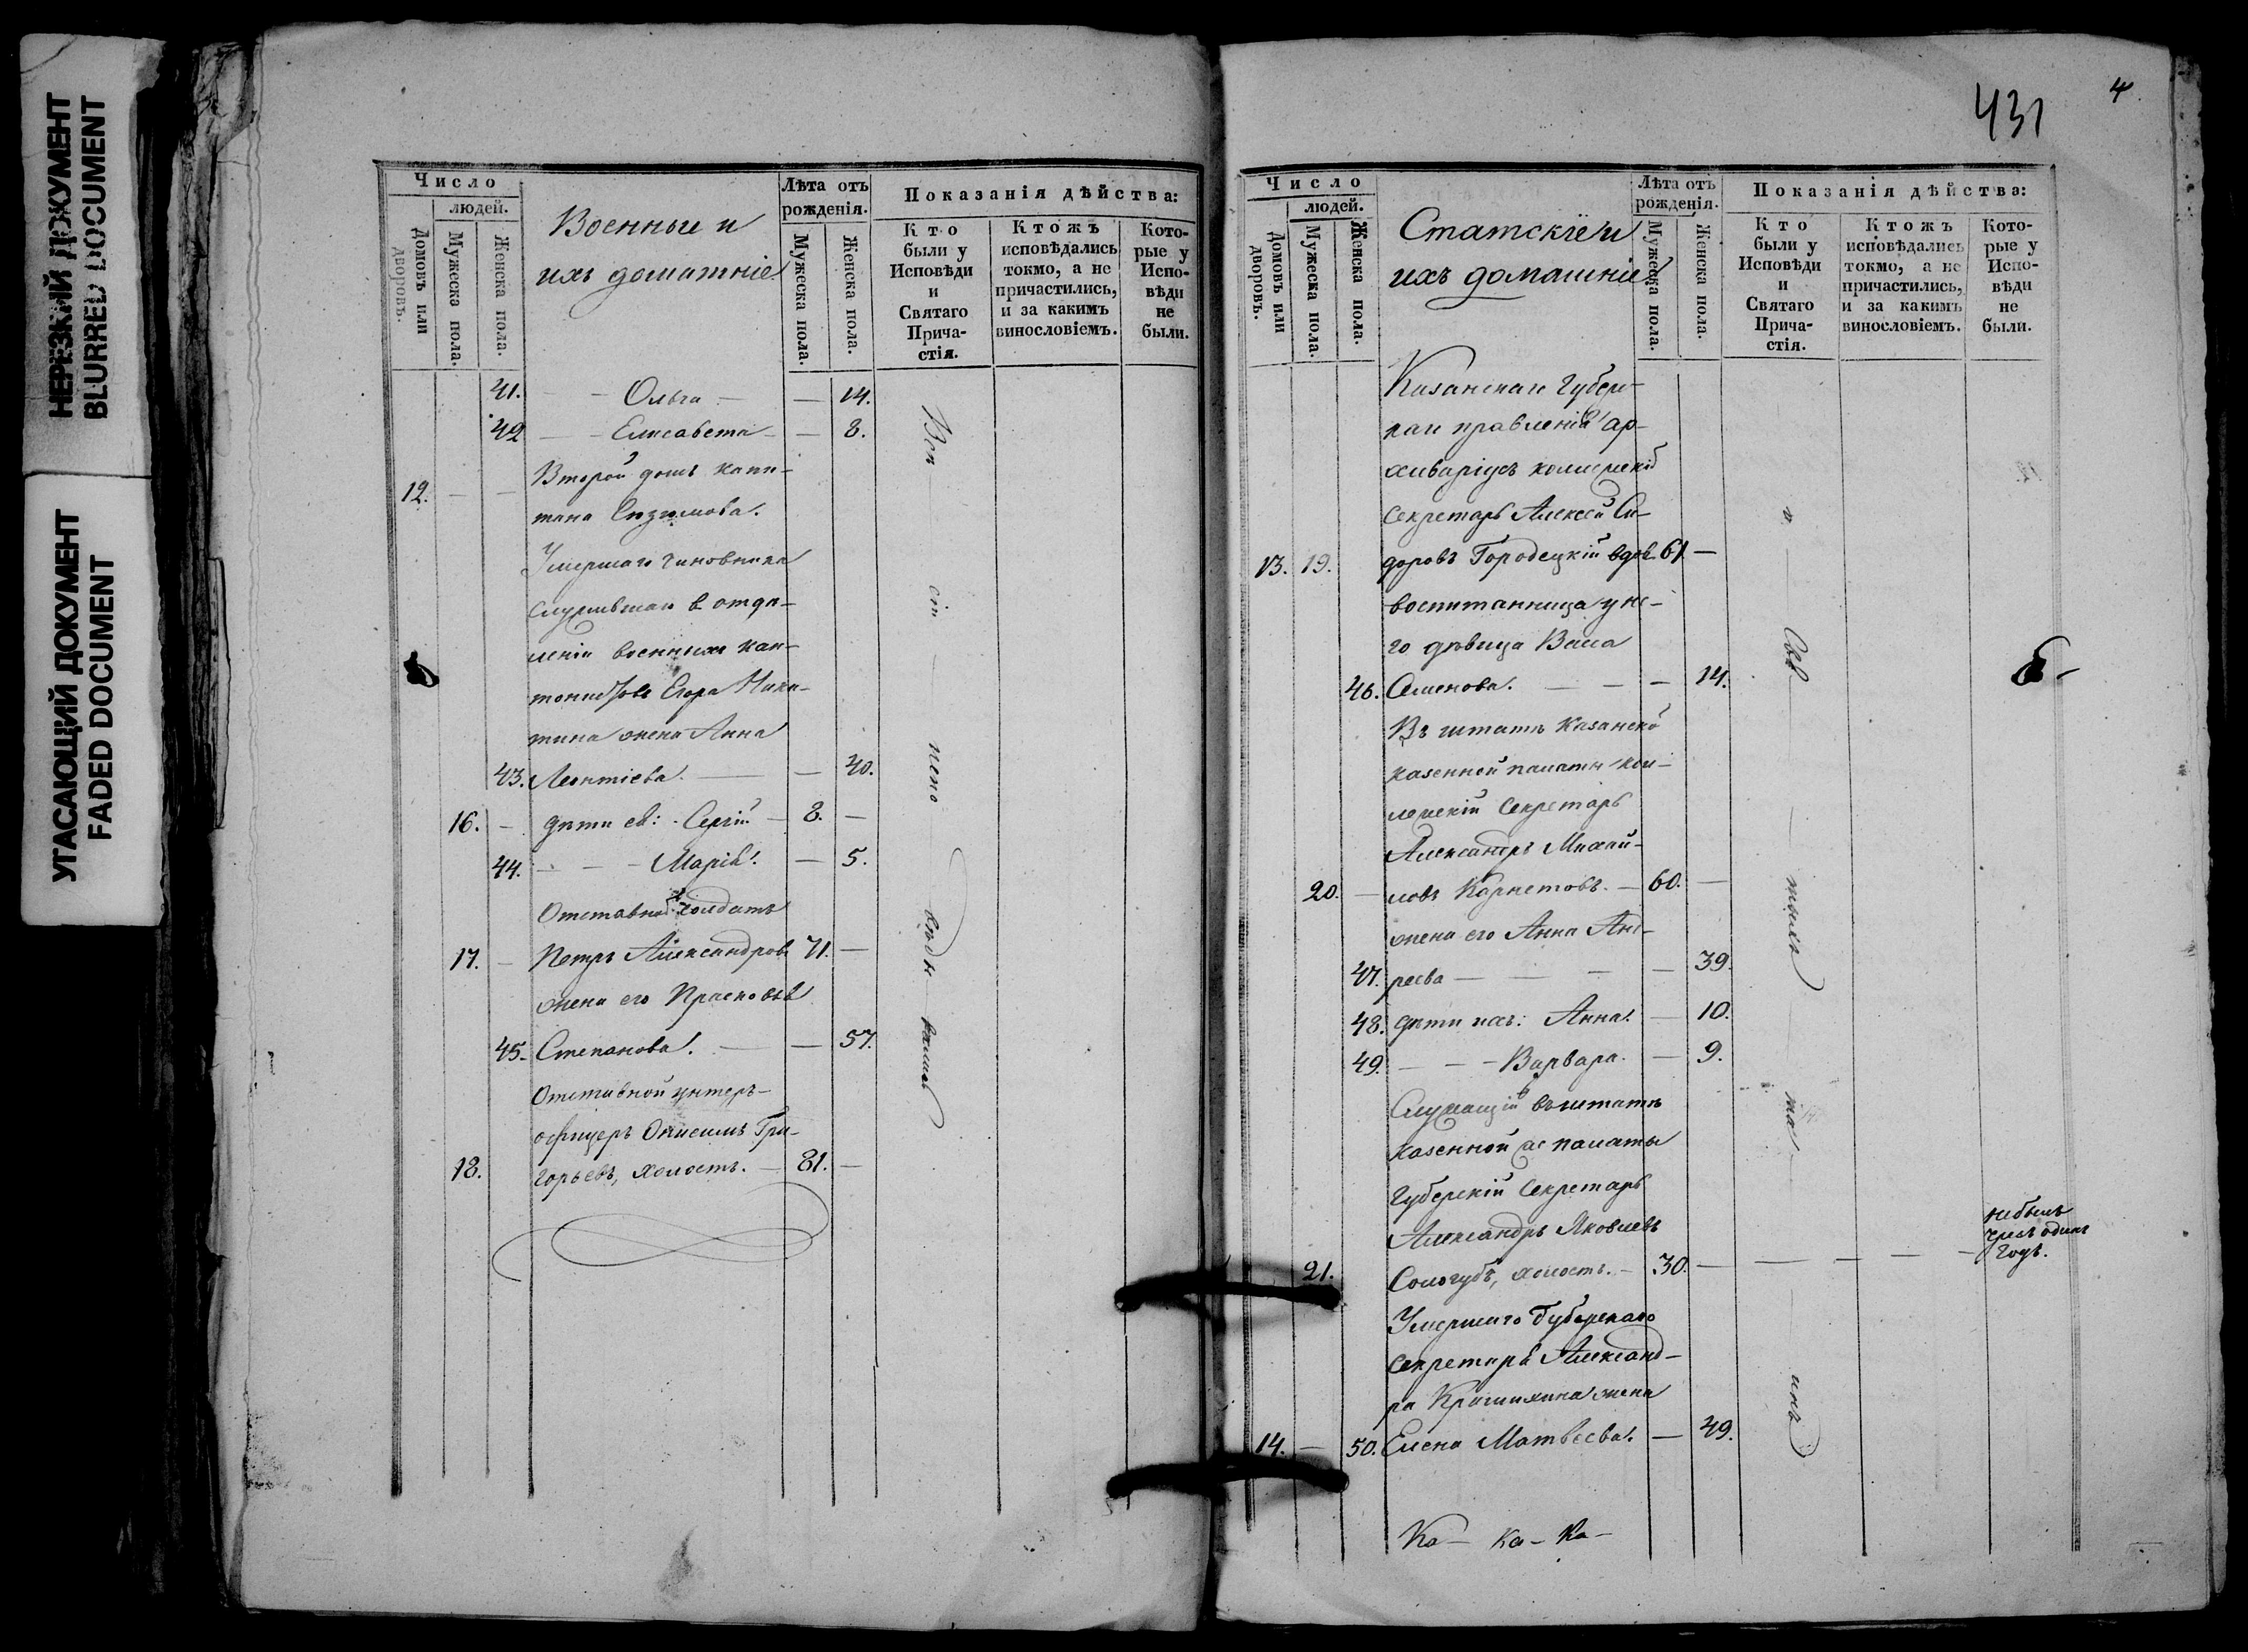 НЕРЕЗКИЙ ДОКУМЕНТ
BLURRED DOCUMENT
УГАСАЮЩИЙ ДОКУМЕНТ
FADED DOCUMENT
Число
людей.
Домовъ или дворовъ.
Мужеска пола.
Женска пола.
Военные и
ихъ домашніе
Лѣта отъ
рожденія.
Мужеска пола.
Женска пола.
Показанія дѣйства:
Кто
были у
Исповѣди
и
Святаго
Прича-
стія.
Ктожъ
исповѣдались
токмо, а не
причастились,
и за какимъ
винословіемъ.
Кото-
рые у
Испо-
вѣди
не
были.
41. — Ольга — — 14.
42 — — Елисавета — — 8.
Второй домъ капи-
12. — — тана
Умершаго чиновника
служившаго в отдѣ-
леніи военныхъ кан-
тонистовъ Егора Ники-
тина жена Анна
43. Леонтіева. — — 40.
16. — дѣти ея: Сергій — 8. —
44. — — Марія. — 5.
Отставной солдатъ
17. — Петръ Александровъ 71. —
жена его Прасковья
45. Степанова. — — 57.
Отставной унтеръ-
офицеръ Онисимъ Гри-
18. горьевъ, холостъ. — 81. —
431
4
Число
людей.
Домовъ или дворовъ.
Мужеска пола.
Женска пола.
Статскіе и
ихъ домашніе
Лѣта отъ
рожденія.
Мужеска пола.
Женска пола.
Показанія дѣйства:
Кто
были у
Исповѣди
и
Святаго
Прича-
стія.
Ктожъ
исповѣдались
токмо, а не
причастились,
и за какимъ
винословіемъ.
Кото-
рые у
Испо-
вѣди
не
были.
Казанскаго Губерн-
скаго правленія ар-
хиваріусъ коллежскій
Секретарь Алексей Си-
13. 19. доровъ Городецкій вдов. 61 —
воспитанница у не-
го дѣвица
46. Семенова. — — — 14.
Въ штатѣ Казанской
казенной палаты кол-
лежскій Секретарь
Александръ Михай-
20. — ловъ Карнетовъ. — 60. —
жена его Анна Анд-
47. реева — — — — 39.
48. дѣти ихъ: Анна. — 10.
49. — — Варвара. — 9.
Служащій въ штатѣ
казенной палаты
Губернскій Секретарь
Александръ Яковлевъ
21. Сологубъ, холостъ. — 30. — — — — —
небылъ
чрезъ одинъ
годъ.
Умершаго Губернскаго
секретаря Александ-
ра жена
14. — 50. Елена Матвеева. — 49.
Ка — Ка — Ка —